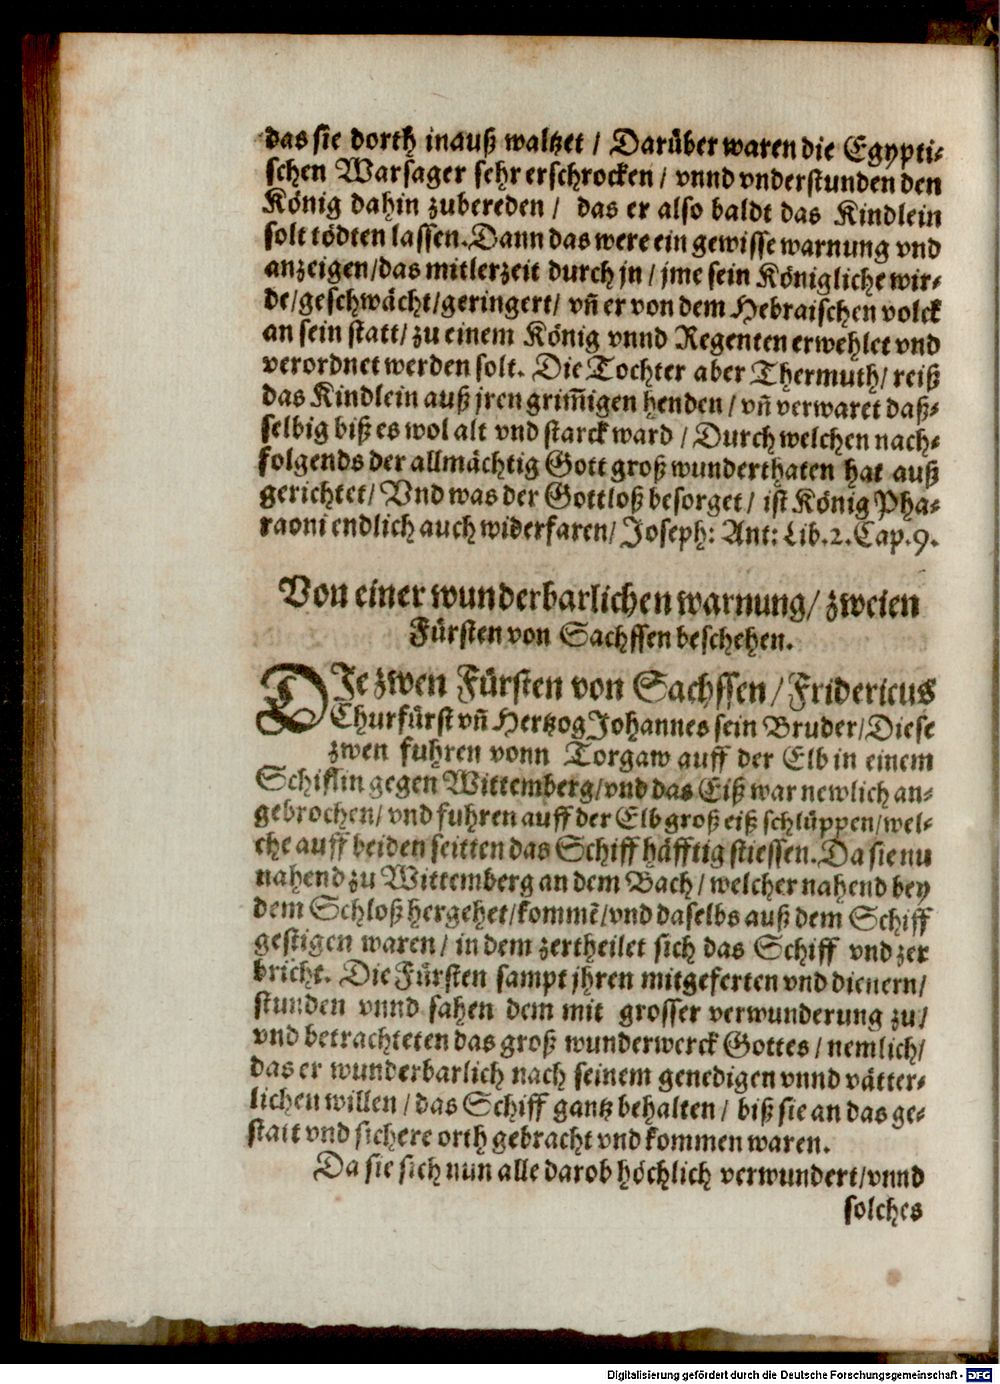 das sie dorth inauß waltzet / Darüber waren die Egypti-
schen Warsager sehr erschrocken / vnnd vnderstunden den
König dahin zubereden / das er also baldt das Kindlein
solt tödten lassen. Dann das were ein gewisse warnung vnd
anzeigen / das mitlerzeit durch jn / jme sein Königliche wir-
de / geschwächt / geringert / vñ er von dem Hebraischen volck
an sein statt / zu einem König vnnd Regenten erwehlet vnd
verordnet werden solt. Die Tochter aber Thermuth / reiß
das Kindlein auß jren grim̃igen henden / vñ verwaret daß-
selbig biß es wol alt vnd starck ward / Durch welchen nach-
folgends der allmächtig Gott groß wunderthaten hat auß
gerichtet / Vnd was der Gottloß besorget / ist König Pha-
raoni endlich auch widerfaren / Joseph: Ant: Lib. 2. Cap. 9.
Von einer wunderbarlichen warnung / zweien
Fürsten von Sachssen beschehen.
DIe zwen Fürsten von Sachssen / Fridericus
Churfürst vñ Hertzog Johannes sein Bruder / Diese
zwen fuhren vonn Torgaw auff der Elb in einem
Schifflin gegen Wittemberg / vnd das Eiß war newlich an-
gebrochen / vnd fuhren auff der Elb groß eiß schlüppen / wel-
che auff beiden seitten das Schiff häfftig stiessen. Da sie nu
nahend zu Wittemberg an dem Bach / welcher nahend bey
dem Schloß hergehet / kommẽ / vnd daselbs auß dem Schiff
gestigen waren / in dem zertheilet sich das Schiff vnd zer
bricht. Die Fürsten sampt jhren mitgeferten vnd dienern /
stunden vnnd sahen dem mit grosser verwunderung zu /
vnd betrachteten das groß wunderwerck Gottes / nemlich /
das er wunderbarlich nach seinem genedigen vnnd vätter-
lichen willen / das Schiff gantz behalten / biß sie an das ge-
statt vnd sichere orth gebracht vnd kommen waren.
Da sie sich nun alle darob höchlich verwundert / vnnd
solches
Digitalisierung gefördert durch die Deutsche Forschungsgemeinschaft - DFG